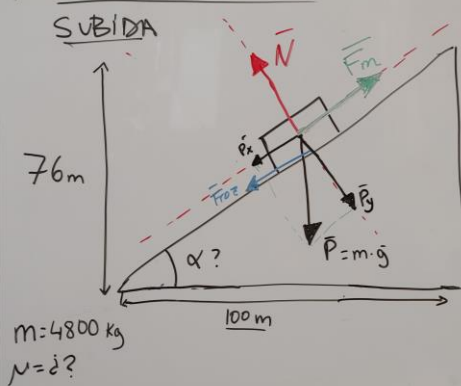 SUBIDA
N
Fm
Px
Froz
Py
76m
α?
P=m·g
100 m
m=4800 kg
μ=¿?